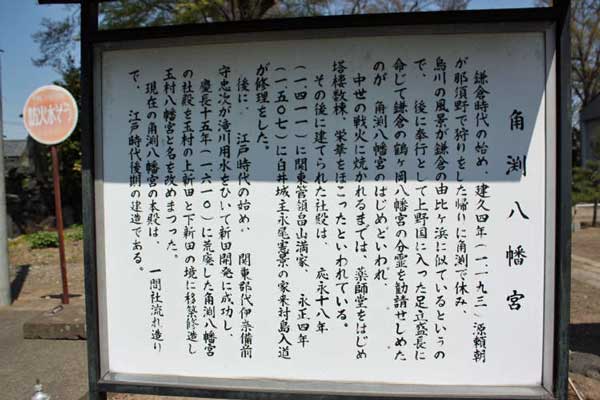 角渕八幡宮
鎌倉時代の始め、建久四年(一一九三)源頼朝
が那須野で狩りをした帰りに角渕で休み、
烏川の風景が鎌倉の由比ヶ浜に似ているというの
で、後に奉行として上野国に入った足立盛長に
命じて鎌倉の鶴ヶ岡八幡宮の分霊を勧請せしめた
のが、角渕八幡宮のはじめといわれ、
中世の戦火に焼かれるまでは、薬師堂をはじめ
塔楼数棟、栄華をほこったといわれている。
その後に建てられた社殿は、応永十八年
(一四一一)に関東管領畠山満家、永正四年
(一五〇七)に白井城主永尾憲景の家来対島入道
が修理をした。
後に、江戸時代の始め、関東郡代伊奈備前
守忠次が滝川用水をひいて新田開発に成功し、
慶長十五年(一六一〇)に荒廃した角渕八幡宮
の社殿を玉村の上新田と下新田の境に移築修造し
玉村八幡宮と名を改めまつった。
現在の角渕八幡宮の本殿は、一間社流れ造り
で、江戸時代後期の建造である。
防火水そう